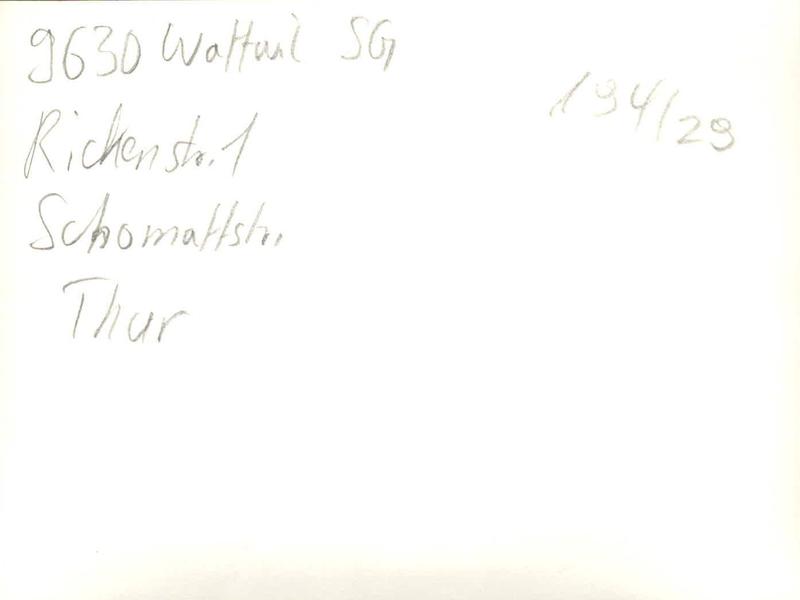 9630 Wattwil SG
194/29
Rickenstr. 1
Schomattstr.
Thur